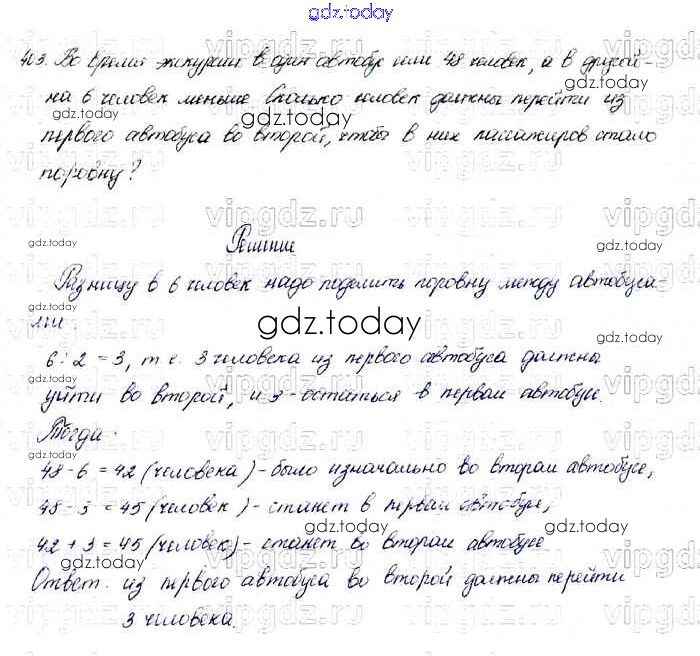 gdz.today
403. Во время экскурсии в один автобус сели 48 человек, а в другой –
на 6 человек меньше. Сколько человек должны перейти из
первого автобуса во второй, чтобы в них пассажиров стало
поровну?
Решение
Разницу в 6 человек надо поделить поровну между автобуса-
ми.
6 : 2 = 3, т.е. 3 человека из первого автобуса должны
уйти во второй, и 3 - остаться в первом автобусе.
Тогда:
48 - 6 = 42 (человека) - было изначально во втором автобусе,
48 - 3 = 45 (человек) - станет в первом автобусе,
42 + 3 = 45 (человек) - станет во втором автобусе
Ответ: из первого автобуса во второй должны перейти
3 человека.
vipgdz.ru
gdz.today